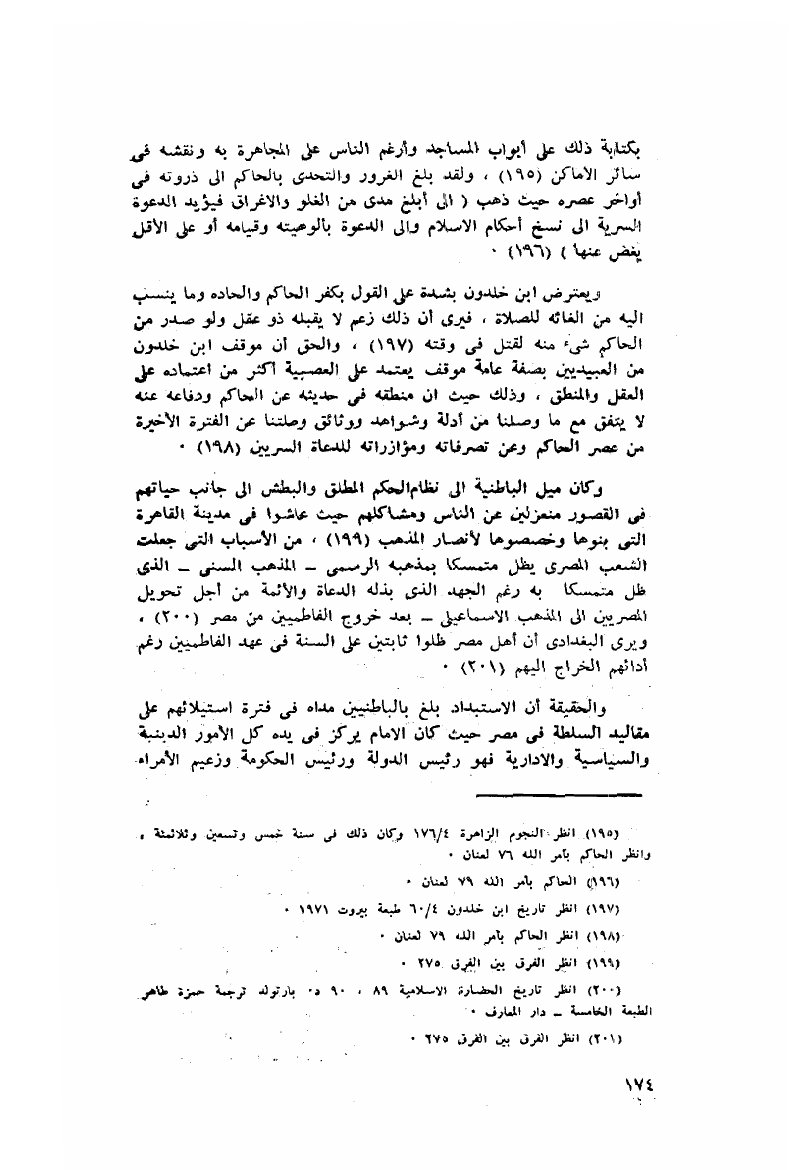 بكتابة ذلك على أبواب المساجد وأرغم الناس على المجاهرة به ونقشه فى
سائر الاماكن (١٩٥) ، ولقد بلغ الغرور والتحدى بالحاكم الى ذروته فى
أواخر عصره حيث ذهب ( الى أبلغ مدى من الغلو والاغراق فيؤيد الدعوة
السرية الى نسخ أحكام الاسلام والى الدعوة بألوهيته وقيامه أو على الأقل
يغض عنها ) (١٩٦) ٠
ويعترض ابن خلدون بشدة على القول بكفر الحاكم والحاده وما ينسب
اليه من الغائه للصلاة ، فيرى أن ذلك زعم لا يقبله ذو عقل ولو صدر من
الحاكم شىء منه لقتل فى وقته (١٩٧) ، والحق أن موقف ابن خلدون
من العبيديين بصفة عامة موقف يعتمد على العصبية أكثر من اعتماده على
العقل والمنطق ، وذلك حيث ان منطقه فى حديثه عن الحاكم ودفاعه عنه
لا يتفق مع ما وصلنا من أدلة وشواهد ووثائق وصلتنا عن الفترة الأخيرة
من عصر الحاكم وعن تصرفاته ومؤازراته للدعاة السريين (١٩٨) ٠
وكان ميل الباطنية الى نظام الحكم المطلق والبطش الى جانب حياتهم
فى القصور منعزلين عن الناس ومشاكلهم حيث عاشوا فى مدينة القاهرة
التى بنوها وخصصوها لأنصار المذهب (١٩٩) ، من الأسباب التى جعلت
الشعب المصرى يظل متمسكا بمذهبه الرسمى ــ المذهب السنى ــ الذى
ظل متمسكا به رغم الجهد الذى بذله الدعاة والأئمة من أجل تحويل
المصريين الى المذهب الاسماعيلى ــ بعد خروج الفاطميين من مصر (٢٠٠) ،
ويرى البغدادى أن أهل مصر ظلوا ثابتين على السنة فى عهد الفاطميين رغم
أدائهم الخراج اليهم (٢٠١) ٠
والحقيقة أن الاستبداد بلغ بالباطنيين مداه فى فترة استيلائهم على
مقاليد السلطة فى مصر حيث كان الامام يركز فى يده كل الأمور الدينية
والسياسية والادارية فهو رئيس الدولة ورئيس الحكومة وزعيم الأمراء
(١٩٥) انظر النجوم الزاهرة ١٧٦/٤ وكان ذلك فى سنة خمس وتسعين وثلاثمئة ،
وانظر الحاكم بأمر الله ٧٦ لعنان ٠
(١٩٦) الحاكم بأمر الله ٧٩ لعنان ٠
(١٩٧) انظر تاريخ ابن خلدون ٦٠/٤ طبعة بيروت ١٩٧١ ٠
(١٩٨) انظر الحاكم بأمر الله ٧٩ لعنان ٠
(١٩٩) انظر الفرق بين الفرق ٢٧٥ ٠
(٢٠٠) انظر تاريخ الحضارة الاسلامية ٨٩ ، ٩٠ د٠ بارتولد ترجمة حمزة طاهر
الطبعة الخامسة ــ دار المعارف ٠
(٢٠١) انظر الفرق بين الفرق ٢٧٥ ٠
١٧٤